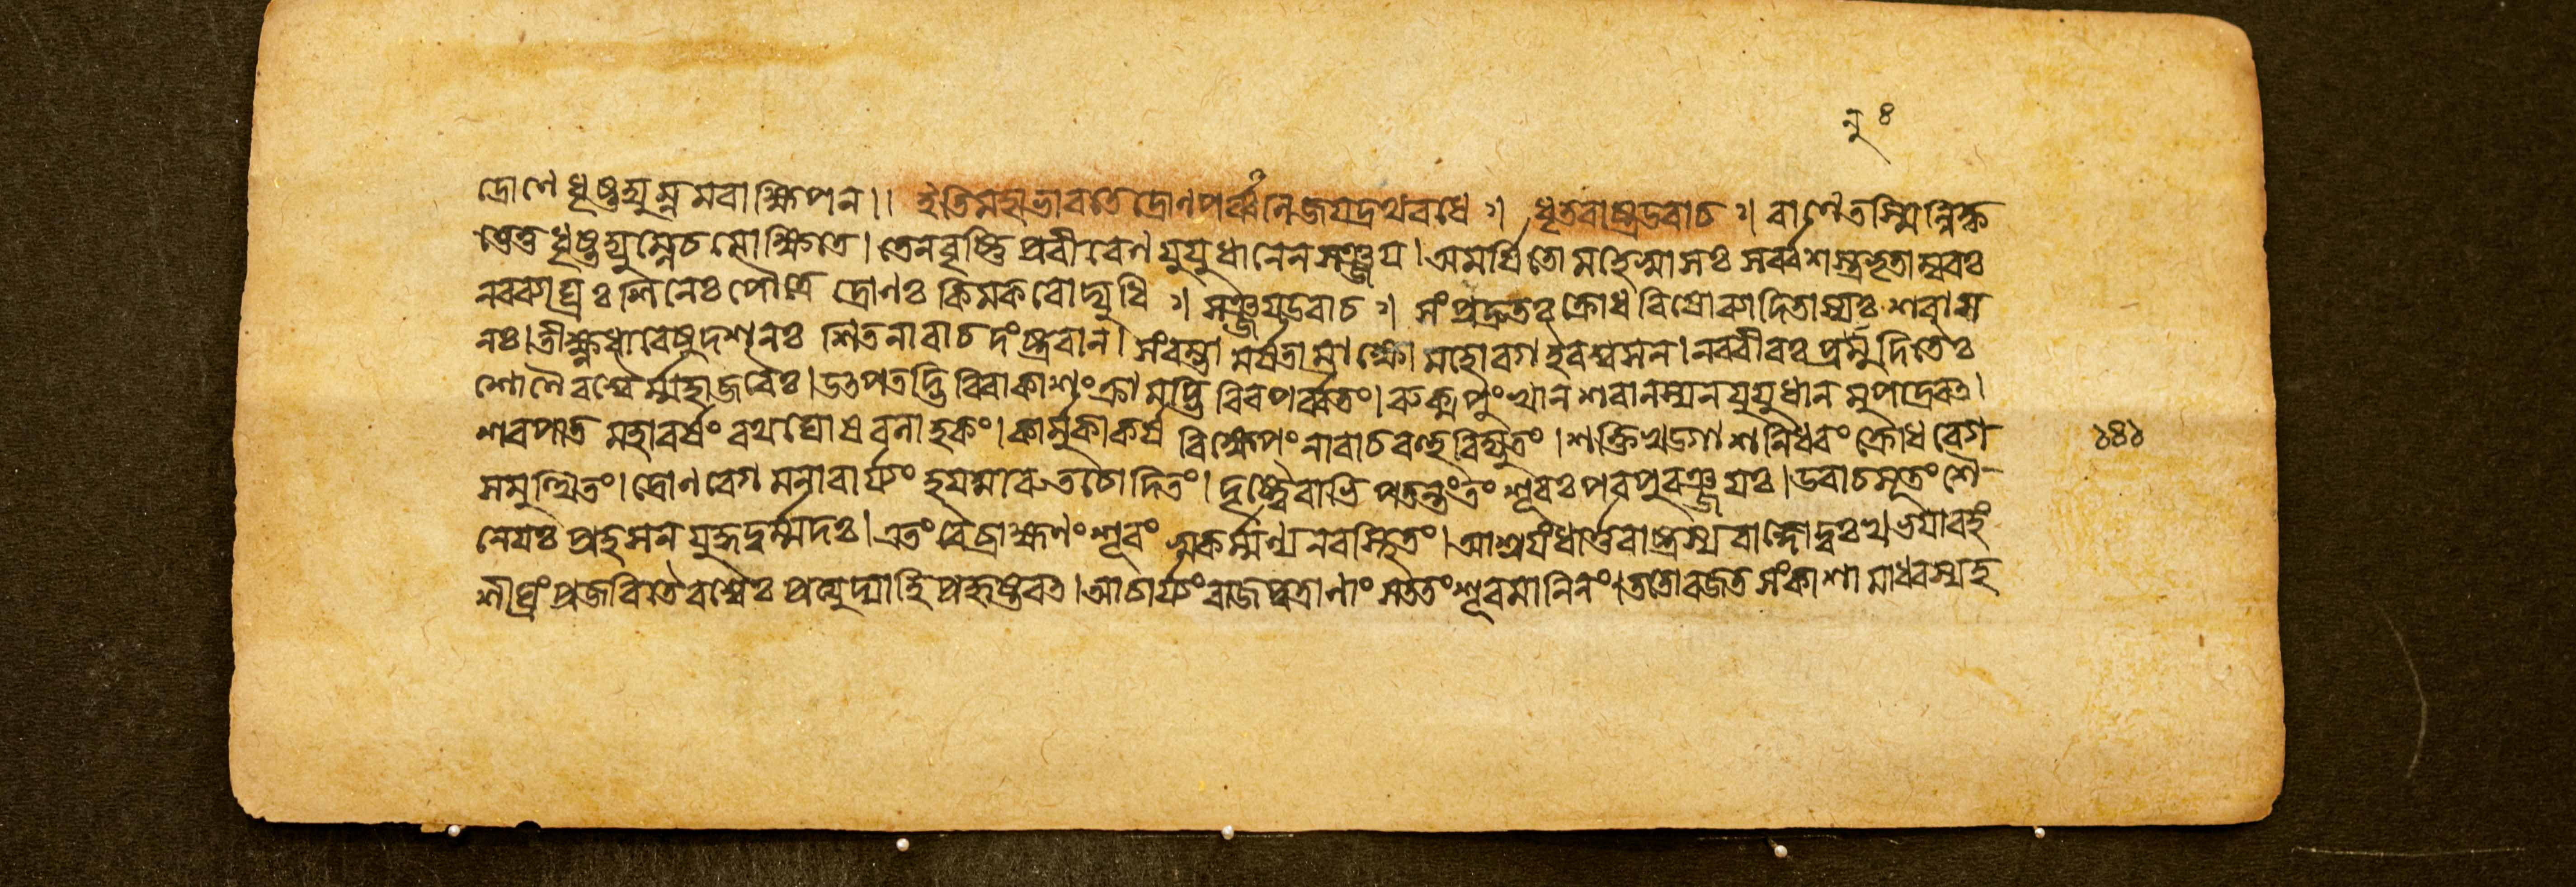 নু ৪
দ্রোণে ধৃষ্টদ্যুম্নমবাক্ষিপেন॥ ইতি মহাভারতে দ্রোণপর্ব্বণি জয়দ্রথবধে ঃ। ধৃতরাষ্ট্রউবাচ ঃ। বাণে তস্মিন্নিকৃ
ত্তেতু ধৃষ্টদ্যুম্নেচ মোক্ষিতে। তেনবৃষ্ণি প্রবীরেণ যুযুধানেনসঞ্জয়। অমর্ষিতো মহেষ্বাসঃ সর্ব্বশস্ত্রভৃতাম্বরঃ
নরব্যাঘ্রঃ শিনেঃপৌত্রে দ্রোণঃ কিমকরোদ্যুধি ঃ। সঞ্জয়উবাচ ঃ। সংপ্রদ্রুতঃ ক্রোধবিষোব্যাদিতাস্যঃ শরাস
নঃ। তীক্ষ্ণধারেষুদশনঃ শিতনারাচদংষ্ট্রবান। সংরম্ভামর্ষতাম্রাক্ষো মহোরগ ইবশ্বসন। নরবীরঃ প্রমুদিতৈঃ
শোণৈরশ্বৈর্ম্মহাজবৈঃ। উৎপতদ্ভিরিবাকাশং ক্রামদ্ভিরিবপর্ব্বতং। রুক্মপুংখান শরানস্যনযুযুধানমুপাদ্রবৎ।
শরপাত মহাবর্ষং রথঘোষবলাহকং। কার্মুকাকর্ষ বিক্ষেপং নারাচবহুবিদ্যুতং। শক্তিখড়্গাশনিধরং ক্রোধবেগ
সমুত্থিতং। দ্রোণবেগ মনাবার্য্যং হয়মারুতচোদিতং। দৃষ্ট্বৈবাভিপতন্তংতং শূরঃ পরপুরঞ্জয়ঃ। উবাচসূতং শৈ
নেয়ঃ প্রহসন যুদ্ধদুর্ম্মদঃ। এতং বৈব্রাহ্মণং শূরং স্বকর্ম্মণ্যনবস্থিতং। আশ্রয়ং ধার্ত্তরাষ্ট্রস্য রাজ্ঞোদুঃখভয়াবহং
শীঘ্রং প্রজবিতৈরশ্বৈঃ প্রত্যুদ্যাহি প্রহৃষ্টবৎ। আচার্য্যং রাজপুত্রাণাং সততং শূরমানিনং। ততোরজতসংকাশা মাধবস্যহ
১৪১